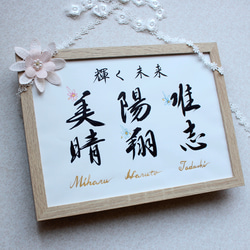 輝く未来
美晴 陽翔 唯志
Miharu Haruto Tadashi